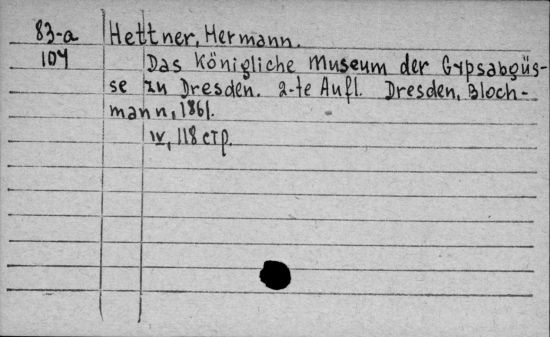 83-a Hettner, Hermann.
104 Das Königliche Museum der Gypsabgüs-
se zu Dresden. 2-te Aufl. Dresden, Bloch-
mann, 1861.
IV, 118 стр.